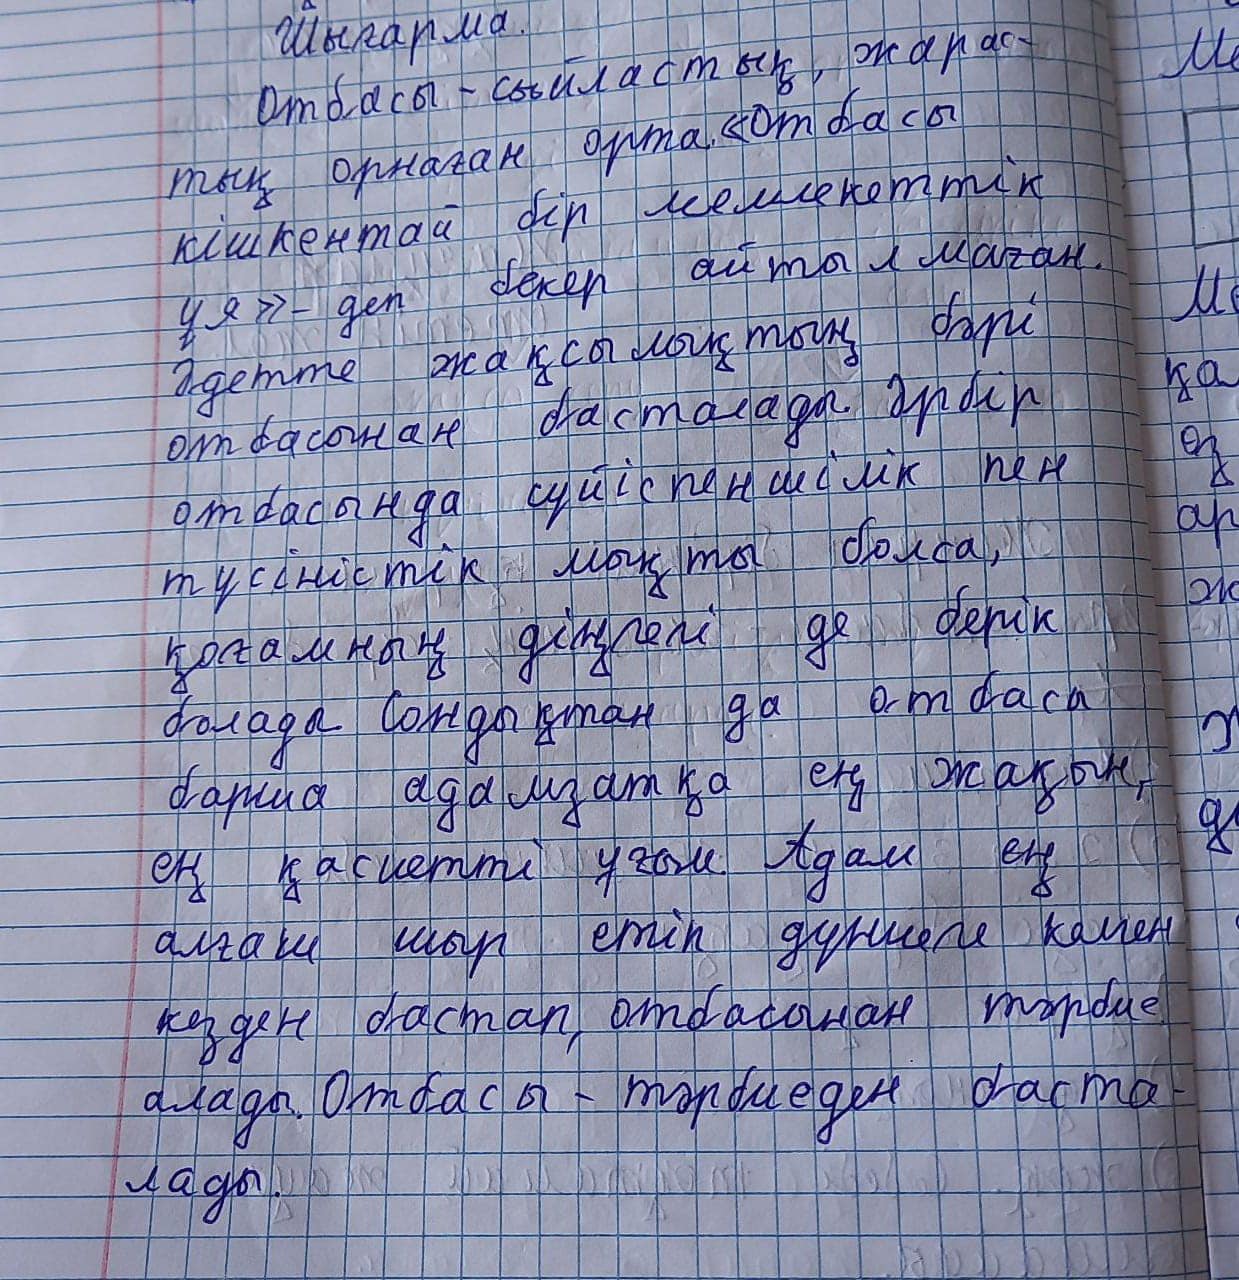 Шығарма.
Отбасы - сыйластық, жарас-
тық орнаған орта. «Отбасы
кішкентай бір мемлекеттік
ұя» - деп бекер айтылмаған.
Әдетте жақсылықтың бәрі
отбасынан басталады. Әрбір
отбасында сүйіспеншілік пен
түсіністік мықты болса,
қоғамның діңгегі де берік
болады. Сондықтан да отбасы
барша адамзатқа ең жақын,
ең қасиетті ұғым. Адам ең
алғаш шыр етіп дүниеге келген
кезден бастап, отбасынан тәрбие
алады. Отбасы - тәрбиеден баста-
лады.